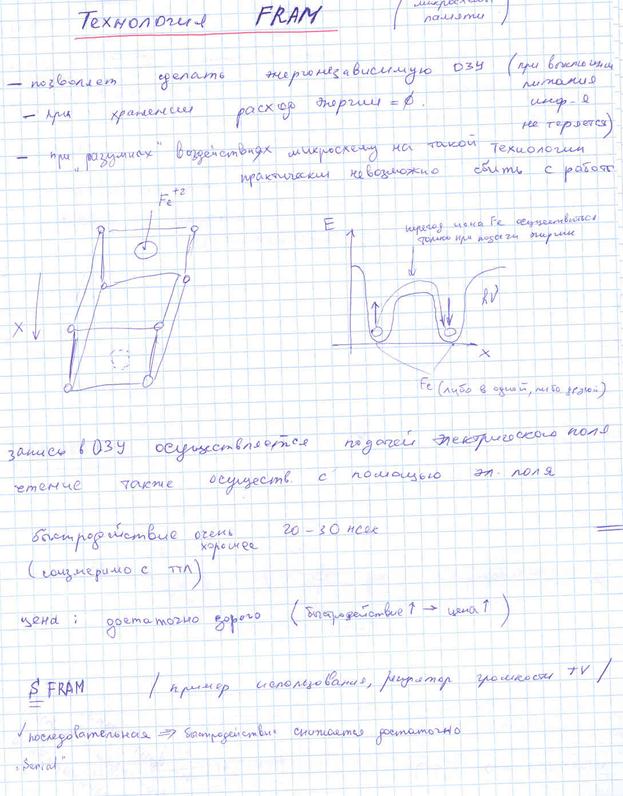 Технология FRAM (микросхемы памяти)
– позволяет сделать энергонезависимую ОЗУ (при выключении питания инф-я не теряется)
– при хранении расход энергии = 0.
– при „разумных" воздействиях микросхему на такой технологии
практически невозможно сбить с работы
Fe+2
X
E
переход иона Fe осуществляется
только при подачи энергии
hν
X
Fe (либо в одной, либо в другой)
запись в ОЗУ осуществляется подачей электрического поля
чтение также осуществ. с помощью эл. поля
быстродействие очень хорошее 20–30 нсек
(соизмеримо с ттл)
цена: достаточно дорого (быстродействие ↑ → цена ↑)
S FRAM / пример использования, регулятор громкости TV /
последовательная ⇒ быстродействие снижается достаточно
„Serial"